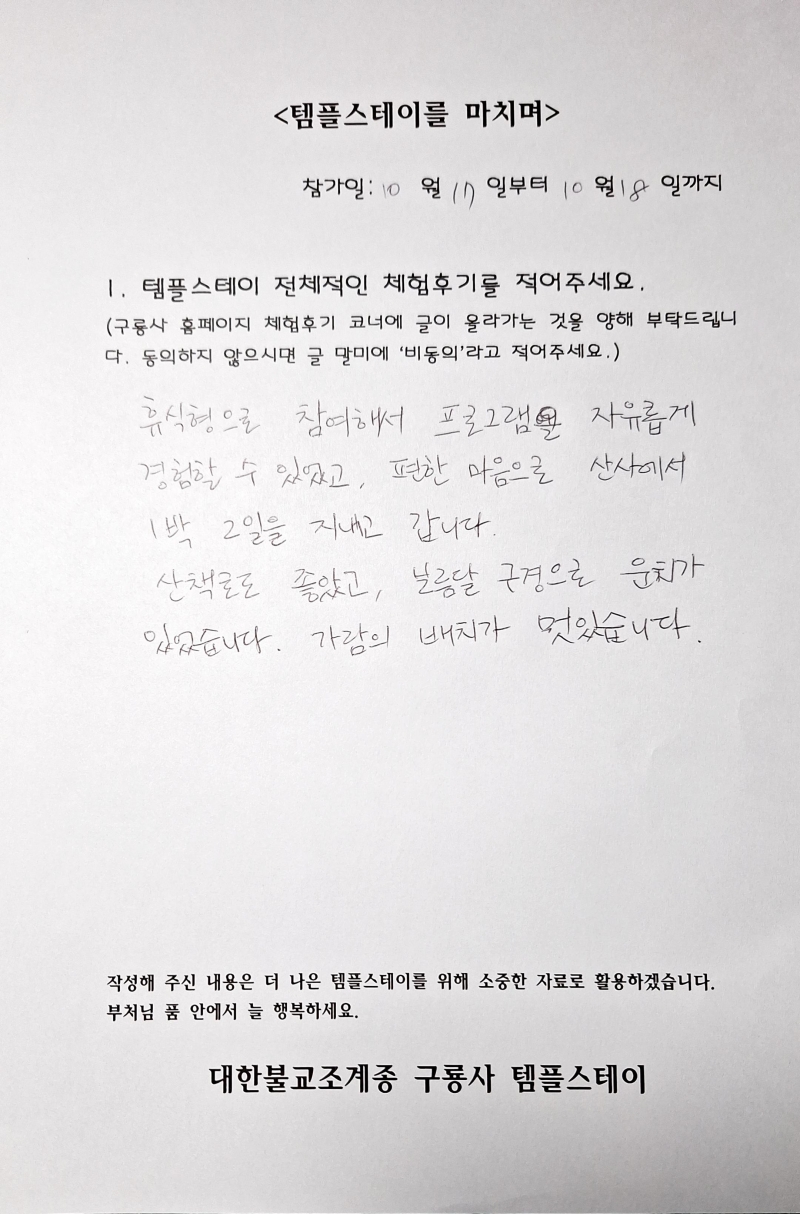 <템플스테이를 마치며>
참가일: 10 월 17 일부터 10 월 18 일까지
1. 템플스테이 전체적인 체험후기를 적어주세요.
(구룡사 홈페이지 체험후기 코너에 글이 올라가는 것을 양해 부탁드립니
다. 동의하지 않으시면 글 말미에 '비동의'라고 적어주세요.)
휴식형으로 참여해서 프로그램을 자유롭게
경험할 수 있었고, 편한 마음으로 산사에서
1박 2일을 지내고 갑니다.
산책로도 좋았고, 보름달 구경으로 운치가
있었습니다. 가람의 배치가 멋있습니다.
작성해 주신 내용은 더 나은 템플스테이를 위해 소중한 자료로 활용하겠습니다.
부처님 품 안에서 늘 행복하세요.
대한불교조계종 구룡사 템플스테이